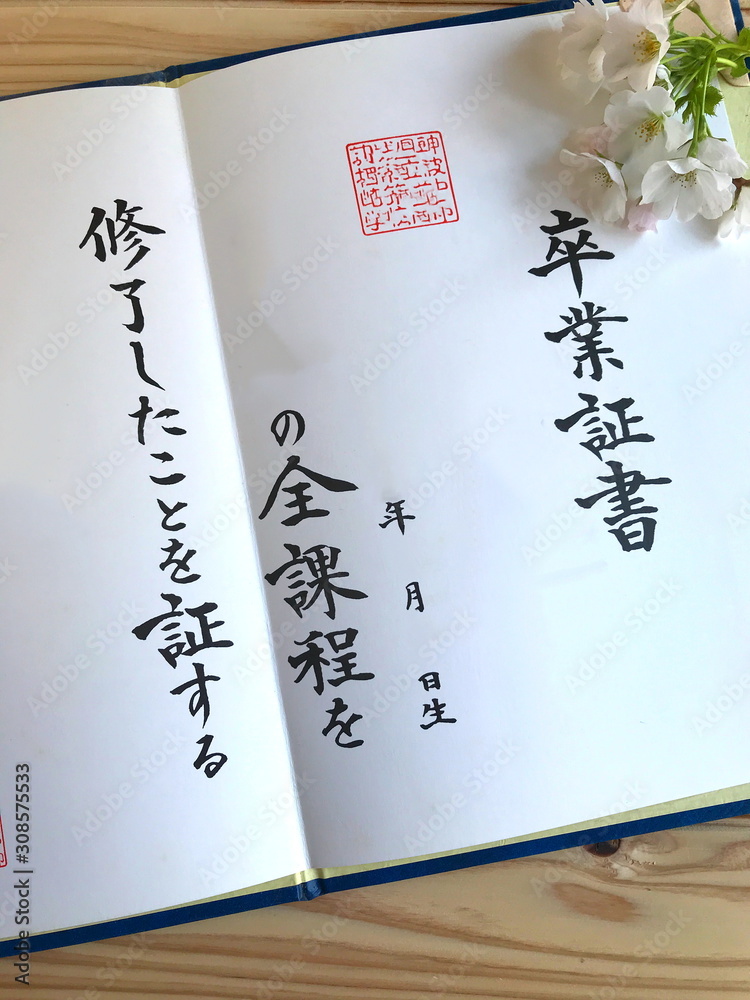 卒業証書
年 月 日生
の全課程を
修了したことを証する
Adobe Stock | #308575533